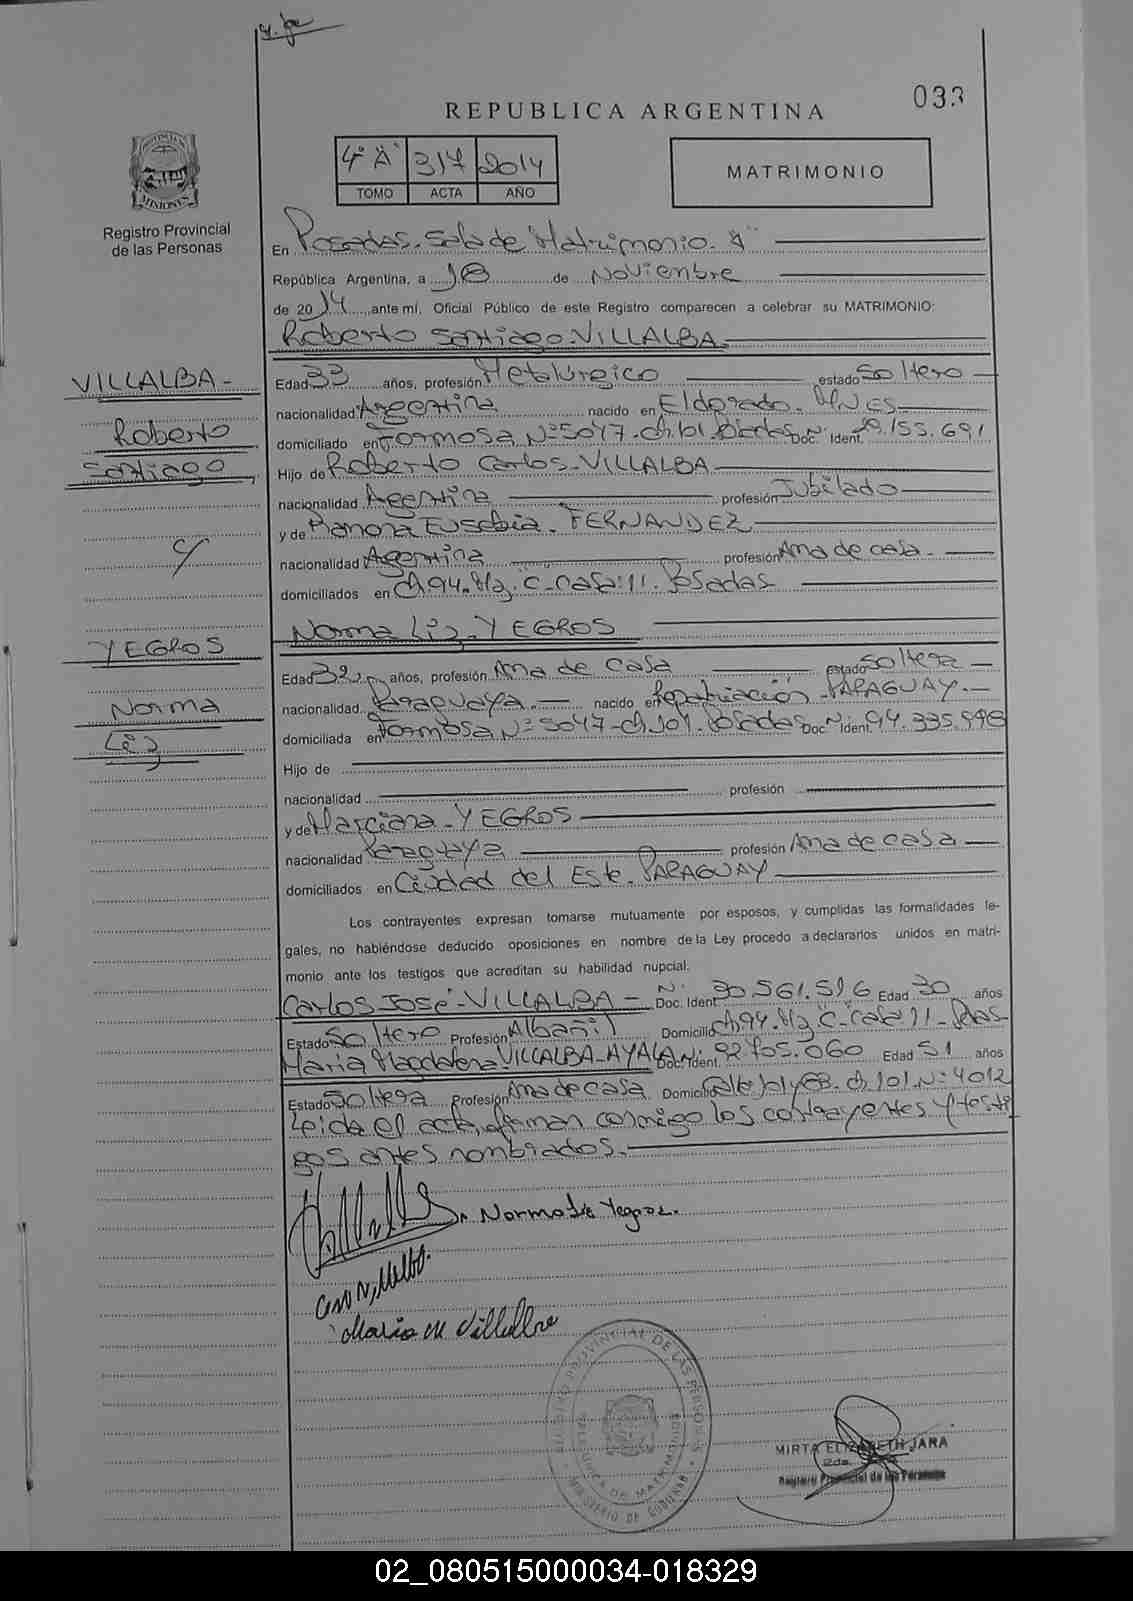 033
REPUBLICA ARGENTINA
4º "A" 317 2014
TOMO ACTA AÑO
MATRIMONIO
PROVINCIA
MISIONES
Registro Provincial
de las Personas
En Posadas. Sala de Matrimonio.
República Argentina, a 18 de Noviembre
de 2014, ante mí, Oficial Público de este Registro comparecen a celebrar su MATRIMONIO:
Roberto Santiago-VILLALBA.
VILLALBA-
Roberto
Santiago,
Edad 33 años, profesión Metalurgico estado Soltero
nacionalidad Argentina nacido en Eldorado. MNES
domiciliado en Formosa Nº 5047-Ch.101.Posadas Doc. Ident. 29.155.691
Hijo de Roberto Carlos-VILLALBA
nacionalidad Argentina profesión Jubilado
y de Ramona Eusebia. FERNANDEZ
nacionalidad Argentina profesión Ama de casa.
domiciliados en Ch.94.Mz."C"-Casa:11.Posadas
y
Norma Liz-YEGROS
YEGROS
Norma
Liz
Edad 32 años, profesión Ama de casa estado Soltera
nacionalidad Paraguaya. nacido en Repatriación-PARAGUAY.
domiciliada en Formosa Nº 5047-Ch.101.Posadas Doc. Ident. 94.335.998
Hijo de
nacionalidad profesión
y de Marciana-YEGROS
nacionalidad Paraguaya profesión Ama de casa
domiciliados en Ciudad del Este. PARAGUAY
Los contrayentes expresan tomarse mutuamente por esposos, y cumplidas las formalidades le-
gales, no habiéndose deducido oposiciones en nombre de la Ley procedo a declararlos unidos en matri-
monio ante los testigos que acreditan su habilidad nupcial.
Carlos José-VILLALBA- Doc. Ident. Nº 30.561.516 Edad 30 años
Estado Soltero Profesión Albañil Domicilio Ch.94.Mz."C"-Casa 11-Pdas
Maria Magdalena VILLALBA-AYALA Doc. Ident. 92.705.060 Edad 51 años
Estado Soltera Profesión Ama de casa Domicilio Calle 101 y Ch.101.Nº:4012
Leida el acta, firman conmigo los contrayentes y testi
gos antes nombrados.
Norma Liz Yegros.
Maria M Villalba
REGISTRO PROVINCIAL DE LAS PERSONAS
MINISTERIO DE GOBIERNO
MIRTA ELIZABETH JARA
Registro Provincial de las Personas
02_080515000034-018329